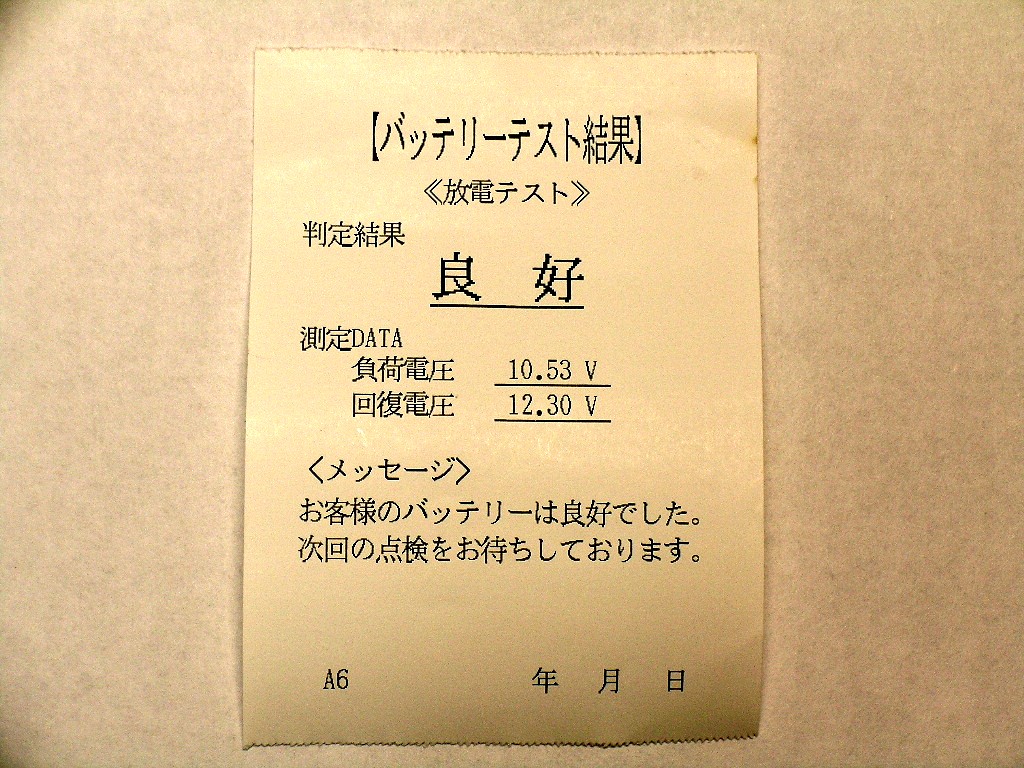 【バッテリーテスト結果】
≪放電テスト≫
判定結果
良 好
測定DATA
負荷電圧 10.53 V
回復電圧 12.30 V
〈メッセージ〉
お客様のバッテリーは良好でした。
次回の点検をお待ちしております。
A6 年 月 日